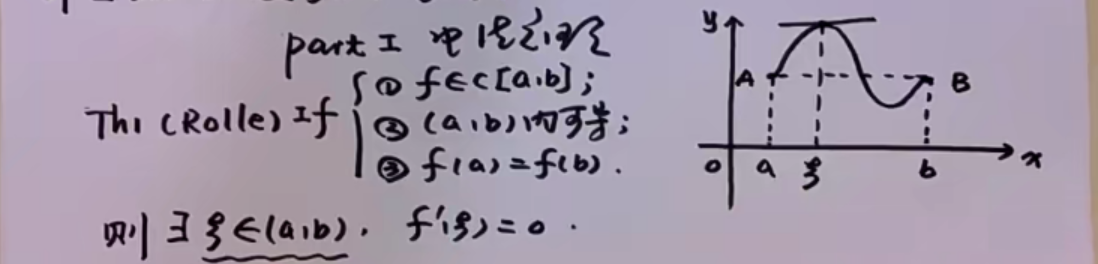 part I 中值定理
Th1 (Rolle) If { ① f∈C[a,b];
② (a,b)内可导;
③ f(a)=f(b).
则 ∃ ξ∈(a,b), f'(ξ)=0.
y
A
B
0
a
ξ
b
x